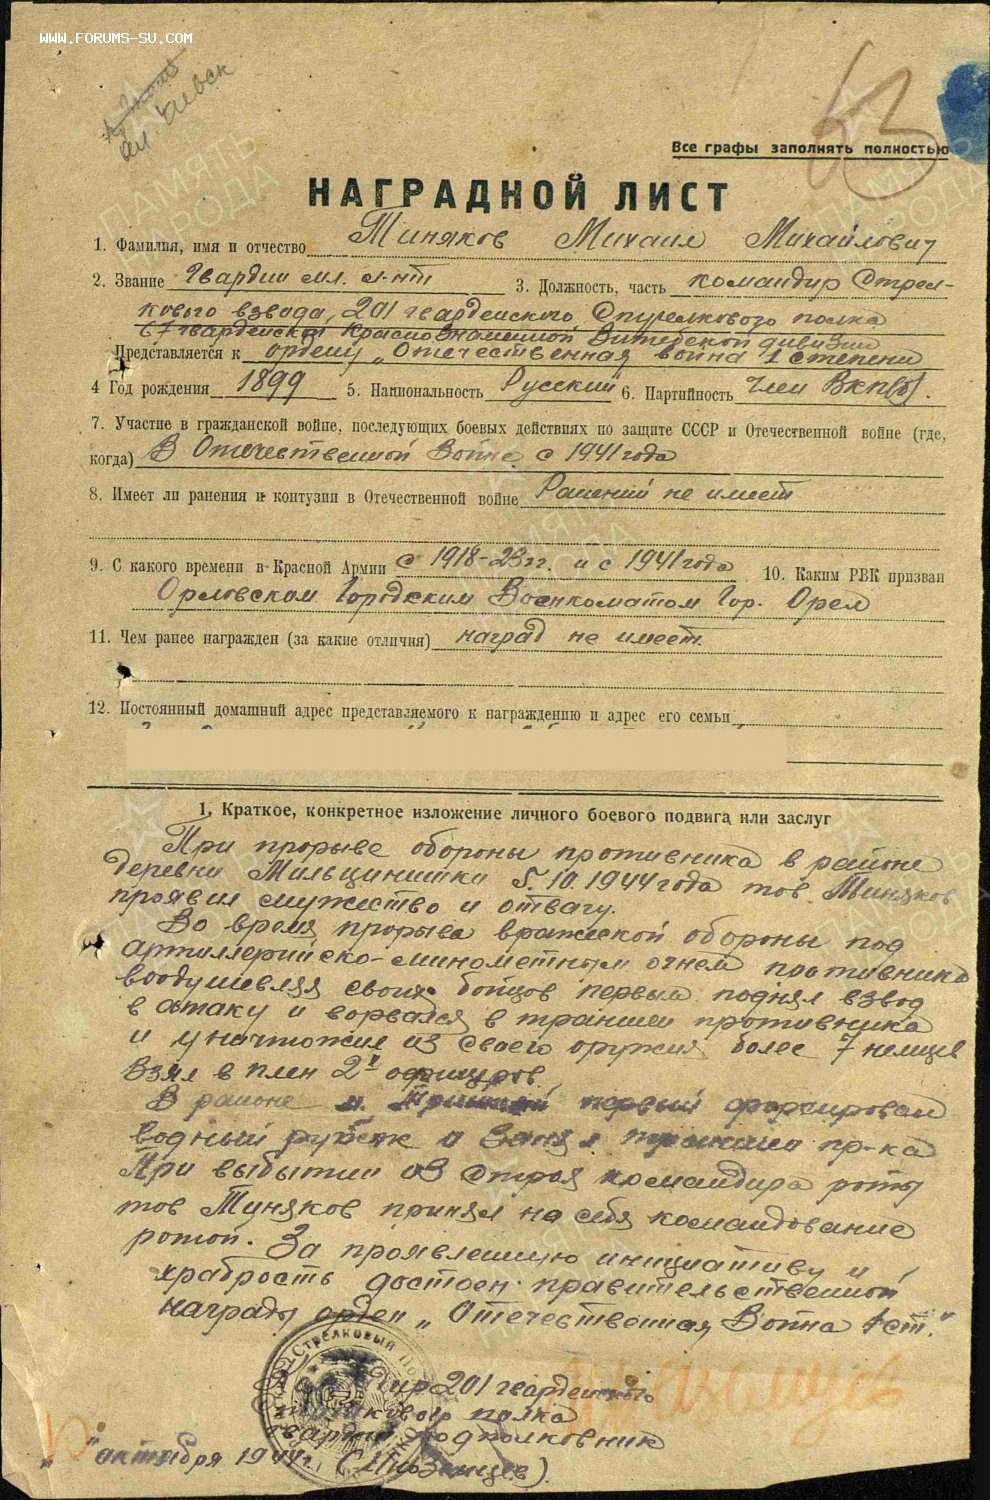 WWW.FORUMS-SU.COM
Все графы заполнять полностью
63
НАГРАДНОЙ ЛИСТ
1. Фамилия, имя и отчество Тиняков Михаил Михайлович
2. Звание Гвардии мл. л-нт 3. Должность, часть командир Стрел-
кового взвода, 201 гвардейского Стрелкового полка
67 гвардейской Краснознаменной Витебской дивизии
Представляется к ордену „Отечественная война 1 степени
4 Год рождения 1899 5. Национальность Русский 6. Партийность Член ВКП(б).
7. Участие в гражданской войне, последующих боевых действиях по защите СССР и Отечественной войне (где,
когда) В Отечественной Войне с 1941 года
8. Имеет ли ранения и контузии в Отечественной войне Ранений не имеет
9. С какого времени в Красной Армии с 1918-23 гг. и с 1941 года 10. Каким РВК призван
Орловским Городским Военкоматом Гор. Орел
11. Чем ранее награжден (за какие отличия) наград не имеет.
12. Постоянный домашний адрес представляемого к награждению и адрес его семьи
1. Краткое, конкретное изложение личного боевого подвига или заслуг
При прорыве обороны противника в районе
деревни 5.10.1944 года тов. Тиняков
проявил мужество и отвагу.
Во время прорыва вражеской обороны под
артиллерийско-минометным огнем противника
воодушевляя своих бойцов первый поднял взвод
в атаку и ворвался в траншеи противника
и уничтожил из своего оружия более 7 немцев
взял в плен 2х офицеров.
В районе первый форсировал
водный рубеж и занял траншеи пр-ка
При выбытии из строя командира роты
тов Тиняков принял на себя командование
ротой. За проявленную инициативу и
храбрость достоен правительственной
награды орден „Отечественная Война 1 ст."
201 гвардейского
стрелкового полка
гвардии подполковник
" октября 1944 г. (Иноземцев).